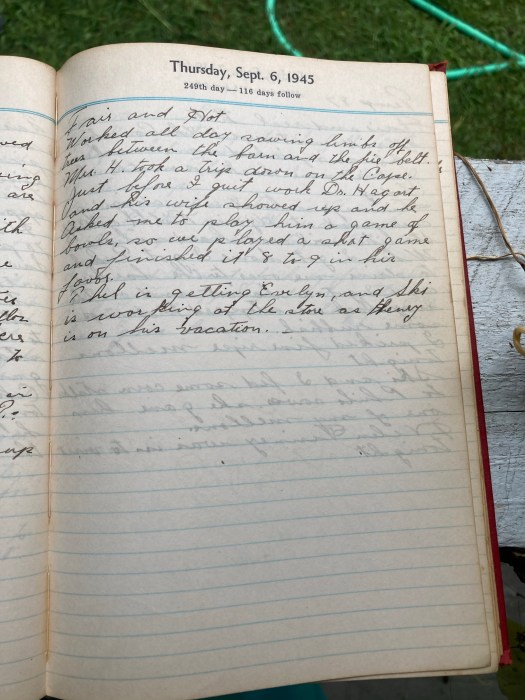 Thursday, Sept. 6, 1945
249th day — 116 days follow
Fair and Hot
Worked all day sawing limbs off
trees between the barn and the fire belt.
Mrs. H. took a trip down on the Cape.
Just before I quit work Dr. Hagart
and his wife showed up and he
asked me to play him a game of
bowls, so we played a shot game
and finished it 8 to 9 in his
favor.
Phil is getting Evelyn, and Ski
is working at the store as Henry
is on his vacation. —
ved
ing
are
ith
e
ere
to
up